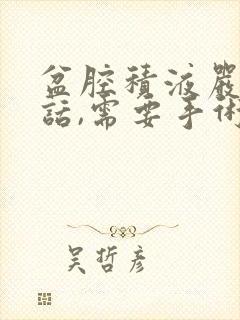 盆腔積液嚴
話,需要手術
吴哲彦